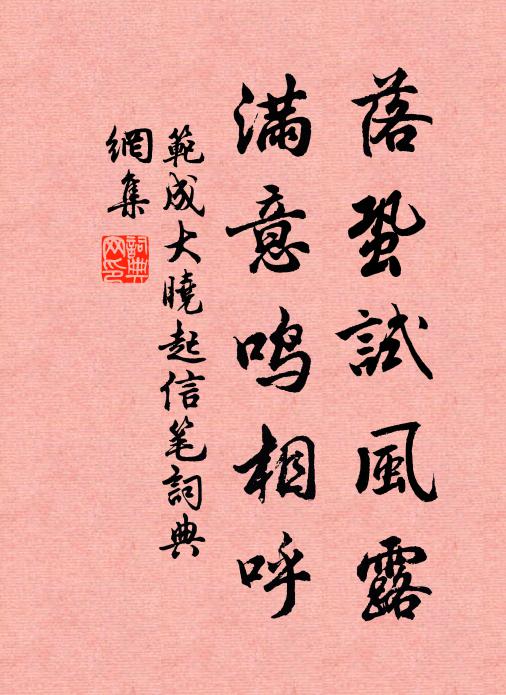 落蛩試風露
滿意鳴相呼
範成大曉起信笔詞典
網集
詞典网印